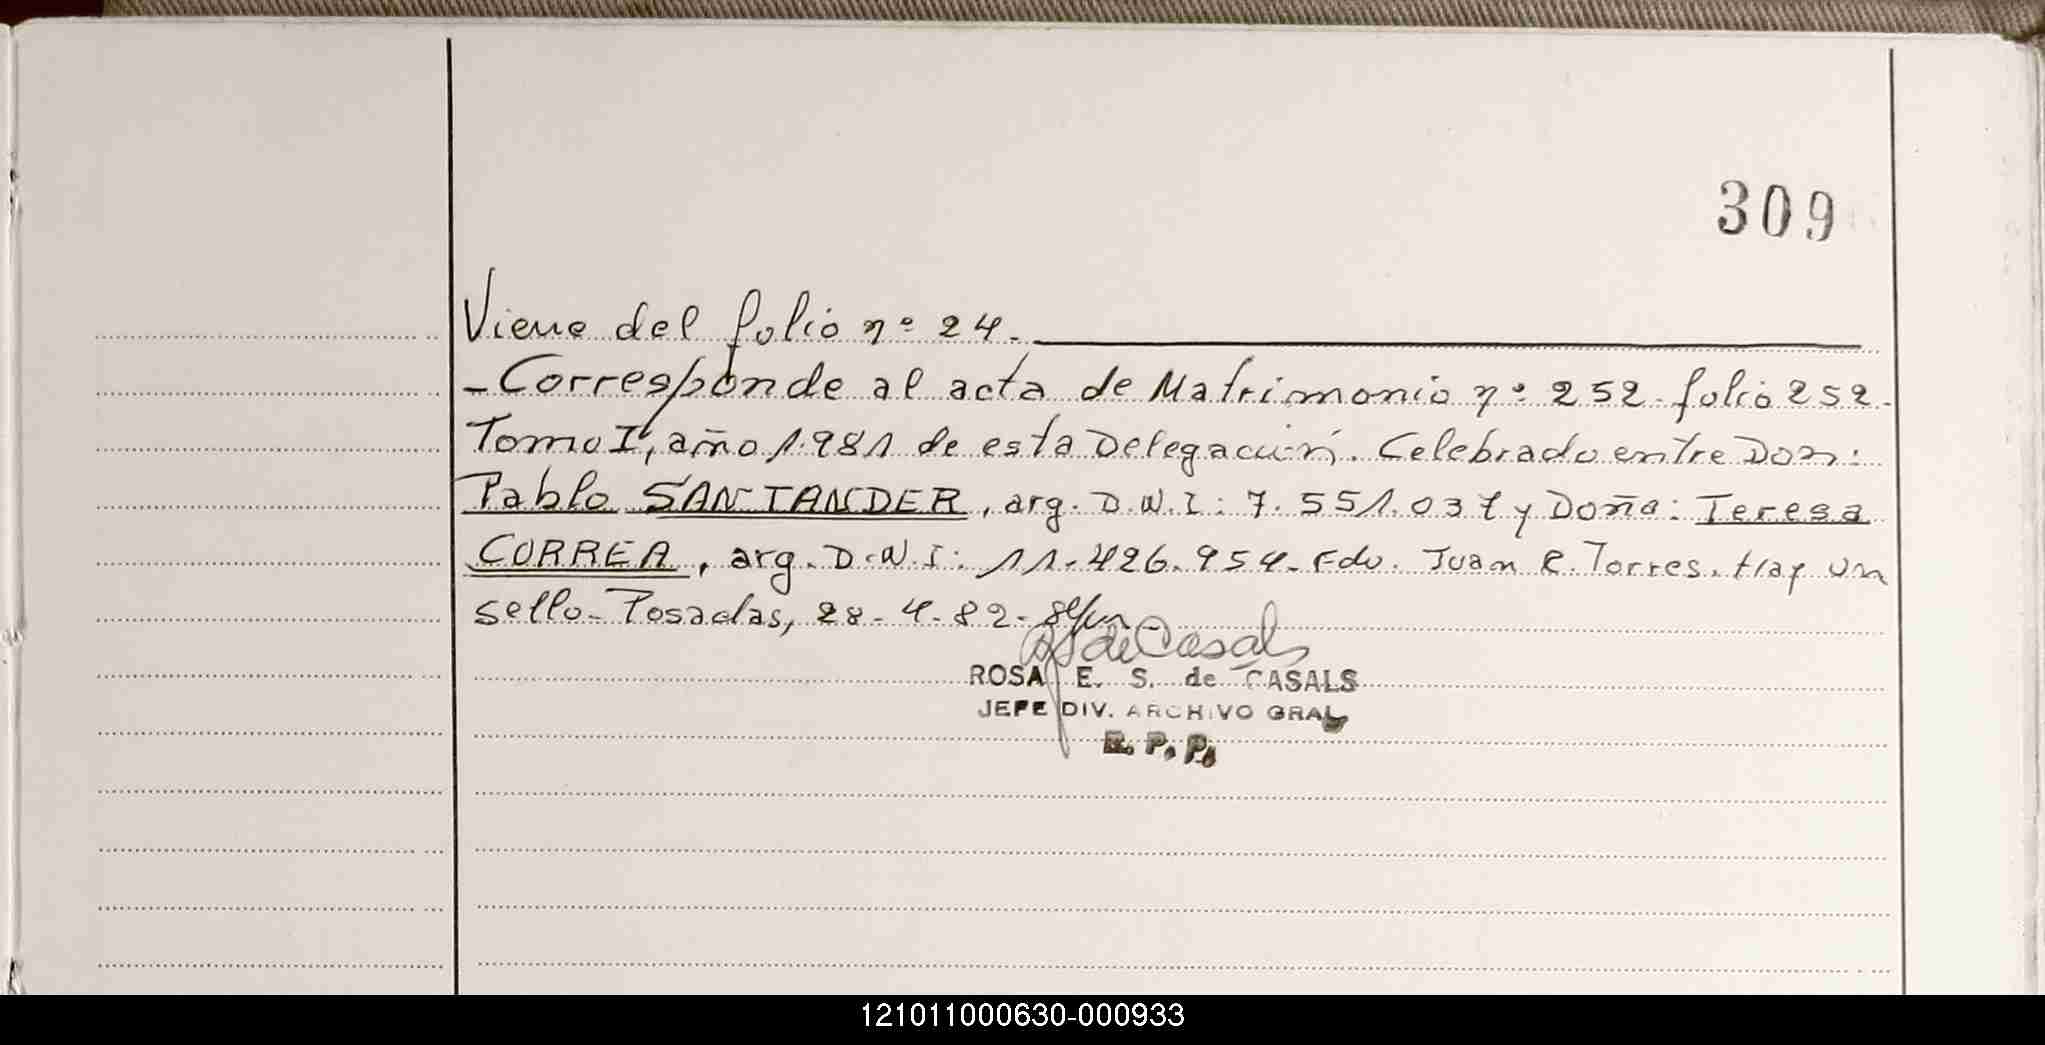 309
Viene del folio nº 24.
-Corresponde al acta de Matrimonio nº 252. folio 252.
Tomo I, año 1.981 de esta Delegación. Celebrado entre Don:
Pablo SANTANDER, arg. D.N.I: 7.551.037 y Doña: Teresa
CORREA, arg. D.N.I: 11.426.954. Fdo. Juan R. Torres. Hay un
sello- Posadas, 28-4-82-
de Casals
ROSA E. S. de CASALS
JEFE DIV. ARCHIVO GRAL
R. P. P.
121011000630-000933